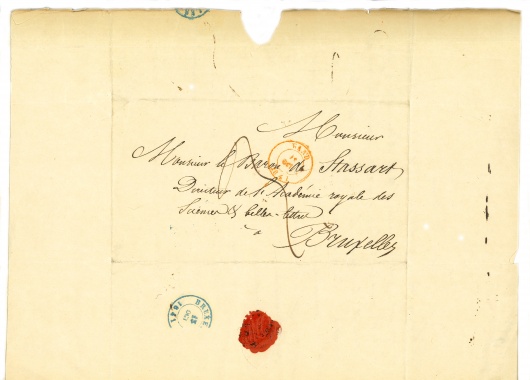 Monsieur
Monsieur le Baron de Stassart
Directeur de l'Académie royale des
Sciences & belles-lettres
à
Bruxelles
GAND
BRUXE